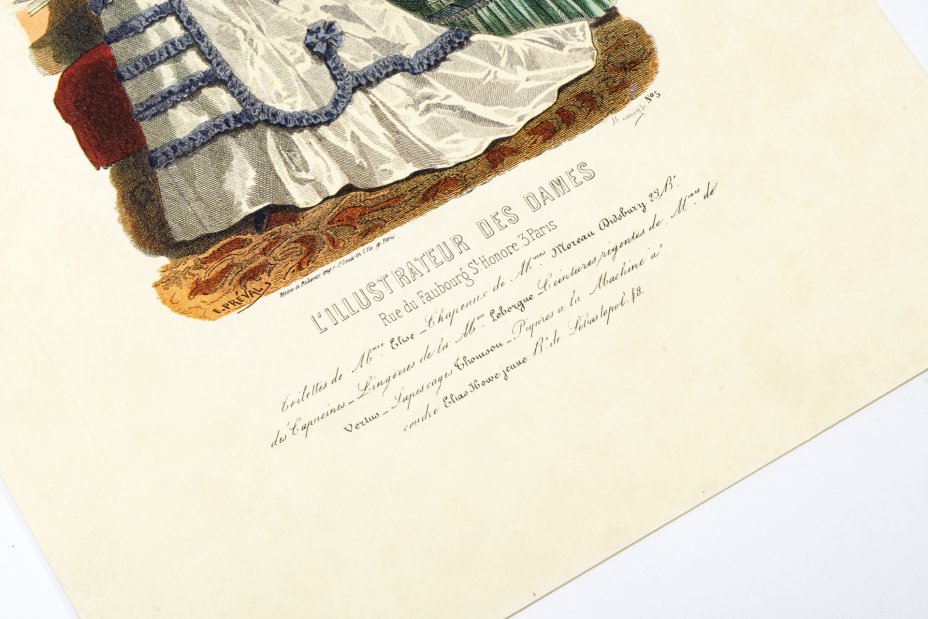 N°5
E. PRÉVAL
L'ILLUSTRATEUR DES DAMES
Rue du Faubourg St Honore 3. Paris
Toilettes de Mme Elise _ Chapeaux de Mmes Moreau Didsbury 23 Bt.
des Capucines _ Lingeries de la Mon Leborgne _ Ceintures régentes de Mmes de
Vertus _ Tapissages Thomson _ Piqures a la Machine à
coudre Elias Howe jeune Bt. de Sébastopol. 48.